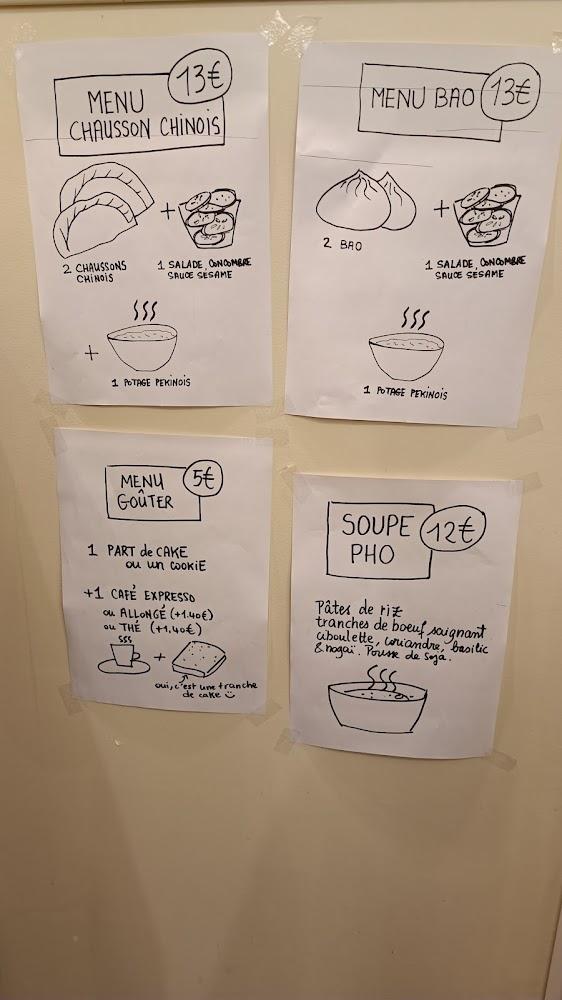 MENU
CHAUSSON CHINOIS
13€
2 CHAUSSONS
CHINOIS
+
1 SALADE, CONCOMBRE
SAUCE SESAME
+
1 POTAGE PEKINOIS
MENU BAO
13€
2 BAO
+
1 SALADE, CONCOMBRE
SAUCE SESAME
1 POTAGE PEKINOIS
MENU
GOÛTER
5€
1 PART de CAKE
ou un COOKIE
+1 CAFÉ EXPRESSO
ou ALLONGÉ (+1.40€)
ou THÉ (+1,40€)
+
oui, c'est une tranche
de cake
SOUPE
PHO
12€
Pâtes de riz
tranches de boeuf saignant
ciboulette, coriandre, basilic
&nogaï. Pousse de Soja.